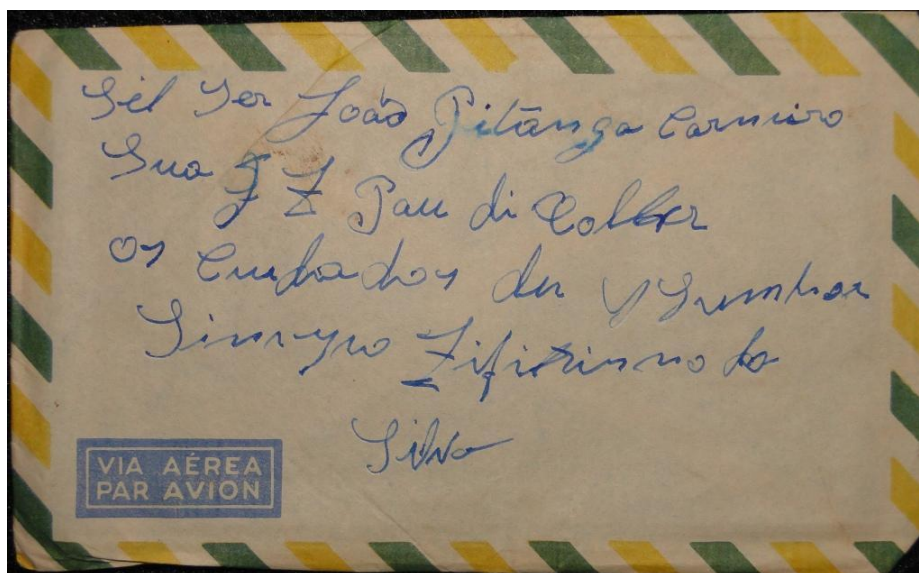 João Pitanga Carneiro
Sua F Z Pau di Colher
os Cuidados du Senhor
Zifirinno da
Silva
VIA AÉREA
PAR AVION